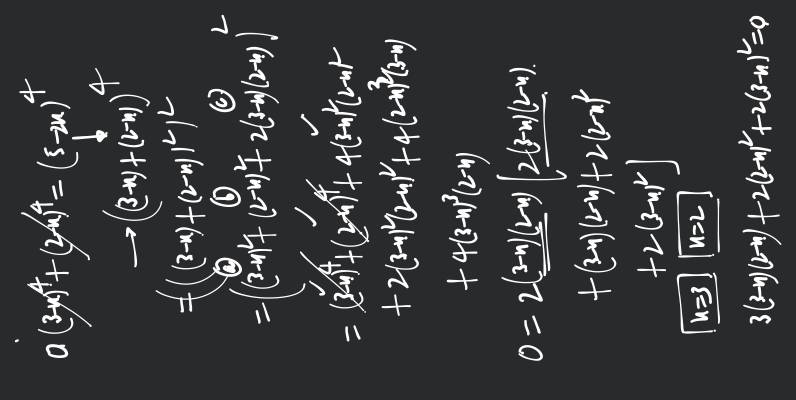 a (3-x)⁴ + (2-x)⁴ = (5-2x)⁴
→ ((3-x) + (2-x))⁴
= (((3-x) + (2-x))²)²
= ((3-x)² + (2-x)² + 2(3-x)(2-x))²
(a) (b) (c)
= (3-x)⁴ + (2-x)⁴ + 4(3-x)²(2-x)²
+ 2(3-x)²(2-x)² + 4(2-x)³(3-x)
+ 4(3-x)³(2-x)
0 = 2(3-x)(2-x) [2(3-x)(2-x)
+ (3-x)(2-x) + 2(2-x)²
+ 2(3-x)²]
x=3 x=2
3(3-x)(2-x) + 2(2-x)² + 2(3-x)² = 0